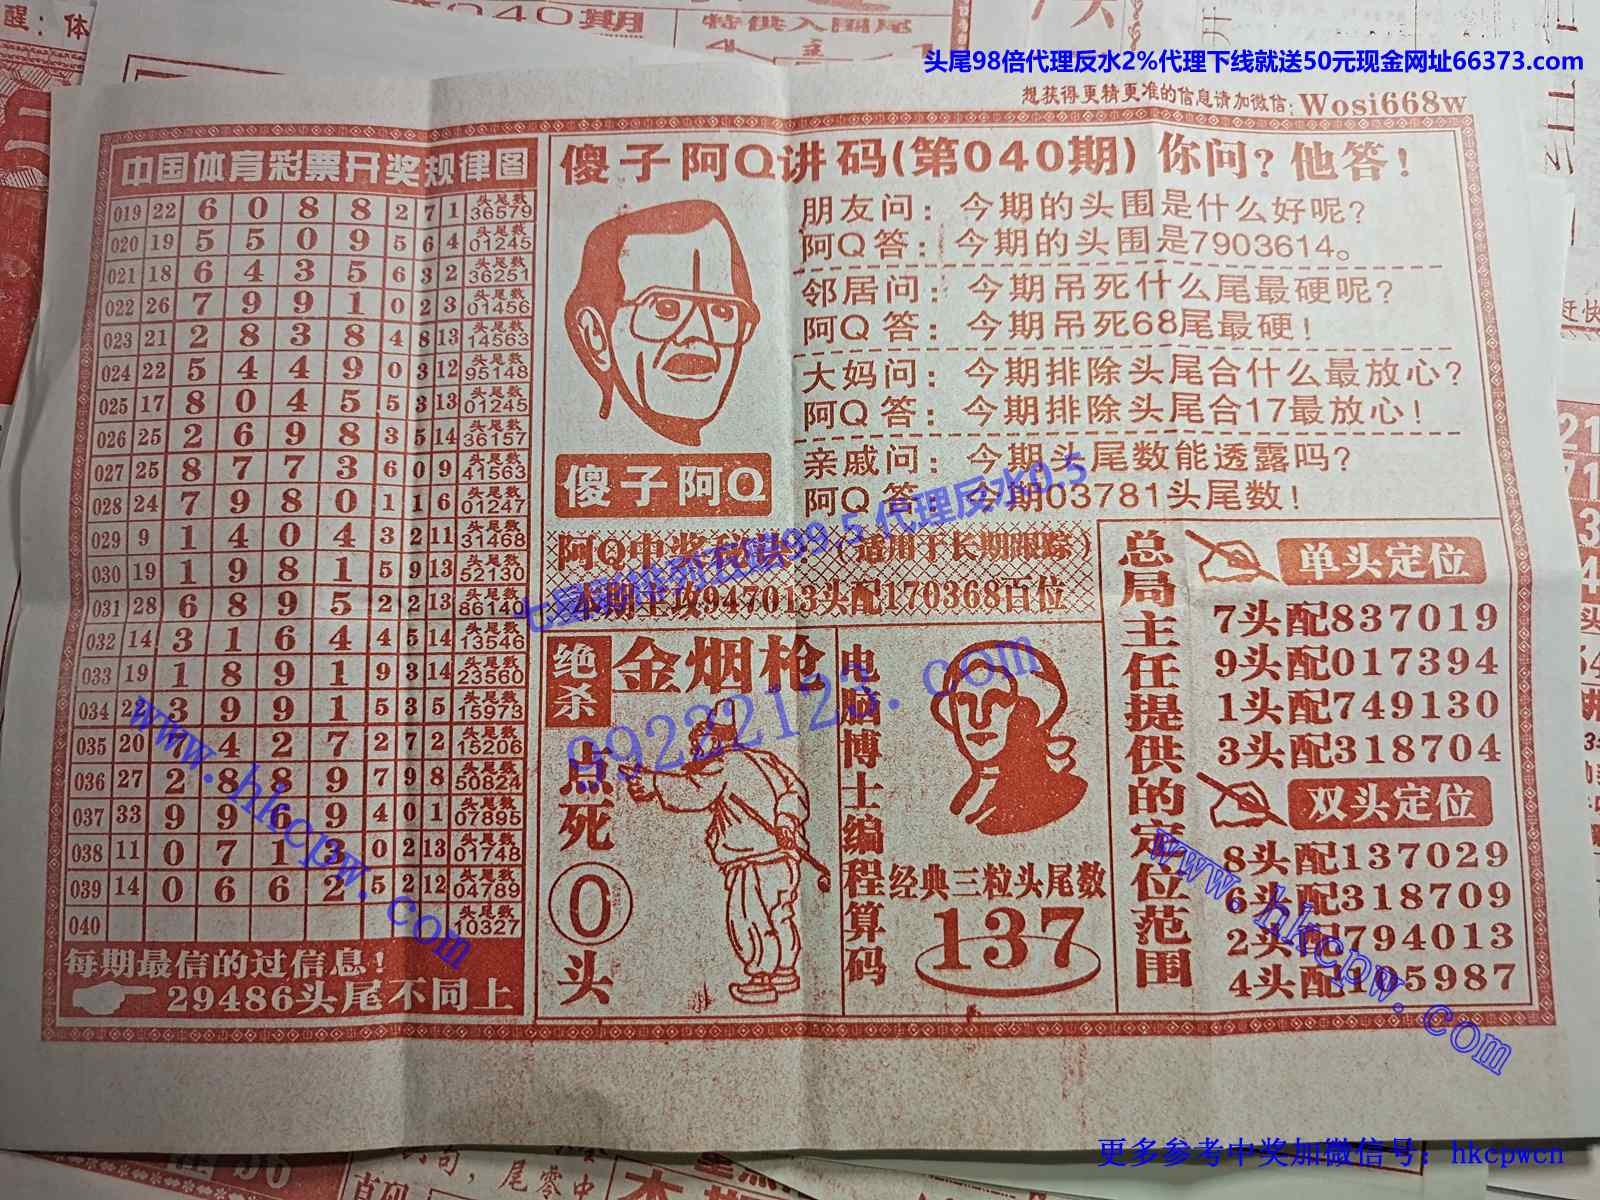 040期
特供入围尾
头尾98倍代理反水2%代理下线就送50元现金网址66373.com
想获得更精更准的信息请加微信:Wosi668w
中国体育彩票开奖规律图
019 22 6 0 8 8 2 7 1 头尾数 36579
020 19 5 5 0 9 5 6 4 头尾数 01245
021 18 6 4 3 5 6 3 2 头尾数 36251
022 26 7 9 9 1 0 2 3 头尾数 01456
023 21 2 8 3 8 4 8 13 头尾数 14563
024 22 5 4 4 9 0 3 12 头尾数 95148
025 17 8 0 4 5 5 3 13 头尾数 01245
026 25 2 6 9 8 3 5 14 头尾数 36157
027 25 8 7 7 3 6 0 9 头尾数 41563
028 24 7 9 8 0 1 1 6 头尾数 01247
029 9 1 4 0 4 3 2 11 头尾数 31468
030 19 1 9 8 1 5 9 13 头尾数 52130
031 28 6 8 9 5 2 2 13 头尾数 86140
032 14 3 1 6 4 4 5 14 头尾数 13546
033 19 1 8 9 1 9 3 14 头尾数 23560
034 22 3 9 9 1 5 3 5 头尾数 15973
035 20 7 4 2 7 2 7 2 头尾数 15206
036 27 2 8 8 9 7 9 8 头尾数 50824
037 33 9 9 6 9 4 0 1 头尾数 07895
038 11 0 7 1 3 0 2 13 头尾数 01748
039 14 0 6 6 2 5 2 12 头尾数 04789
040 头尾数 10327
每期最信的过信息!
29486头尾不同上
傻子阿Q讲码(第040期)你问?他答!
朋友问:今期的头围是什么好呢?
阿Q答:今期的头围是7903614。
邻居问:今期吊死什么尾最硬呢?
阿Q答:今期吊死68尾最硬!
大妈问:今期排除头尾合什么最放心?
阿Q答:今期排除头尾合17最放心!
亲戚问:今期头尾数能透露吗?
阿Q答:今期03781头尾数!
傻子阿Q
(适用于长期跟踪)
本期主攻947013头配170368百位
绝杀
金烟枪
点死
0
头
电脑博士编程算码
经典三粒头尾数
137
总局主任提供的定位范围
单头定位
7头配837019
9头配017394
1头配749130
3头配318704
双头定位
8头配137029
6头配318709
2头配794013
4头配105987
99222123.com
www.hkcpw.com
www.hkcpw.com
更多参考中奖加微信号:hkcpwcn